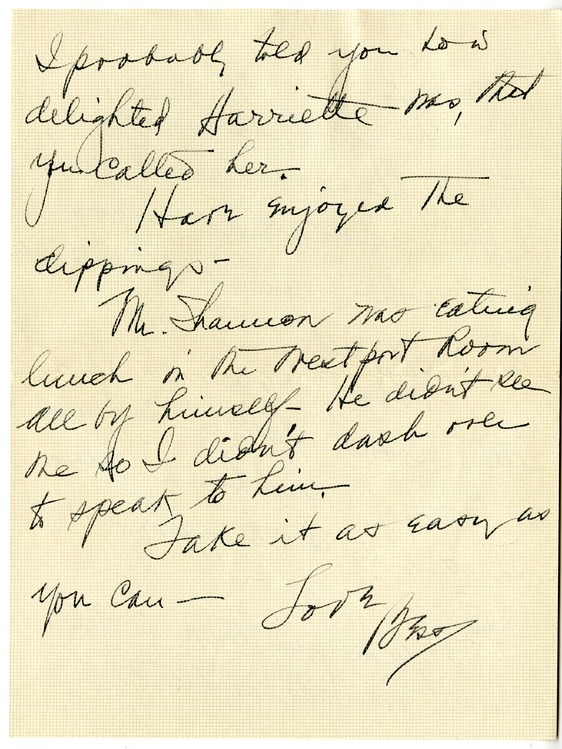 I probably told you how
delighted Harriette was, that
you called her.
Have enjoyed the
clippings-
Mr. Shannon was eating
lunch in the Westport Room
all by himself- He didn't see
me so I didn't dash over
to speak to him.
Take it as easy as
you can—
Love Bess